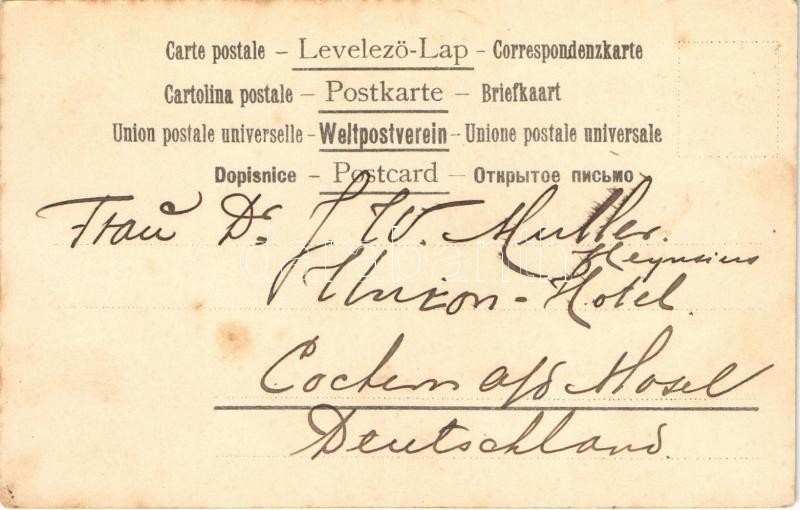 Carte postale – Levelezö-Lap – Correspondenzkarte
Cartolina postale – Postkarte – Briefkaart
Union postale universelle – Weltpostverein – Unione postale universale
Dopisnice – Postcard – Открытое письмо
Frau Dr. J. W. Muller.
Heynsius
Union-Hotel.
Cochem a/d Mosel
Deutschland.